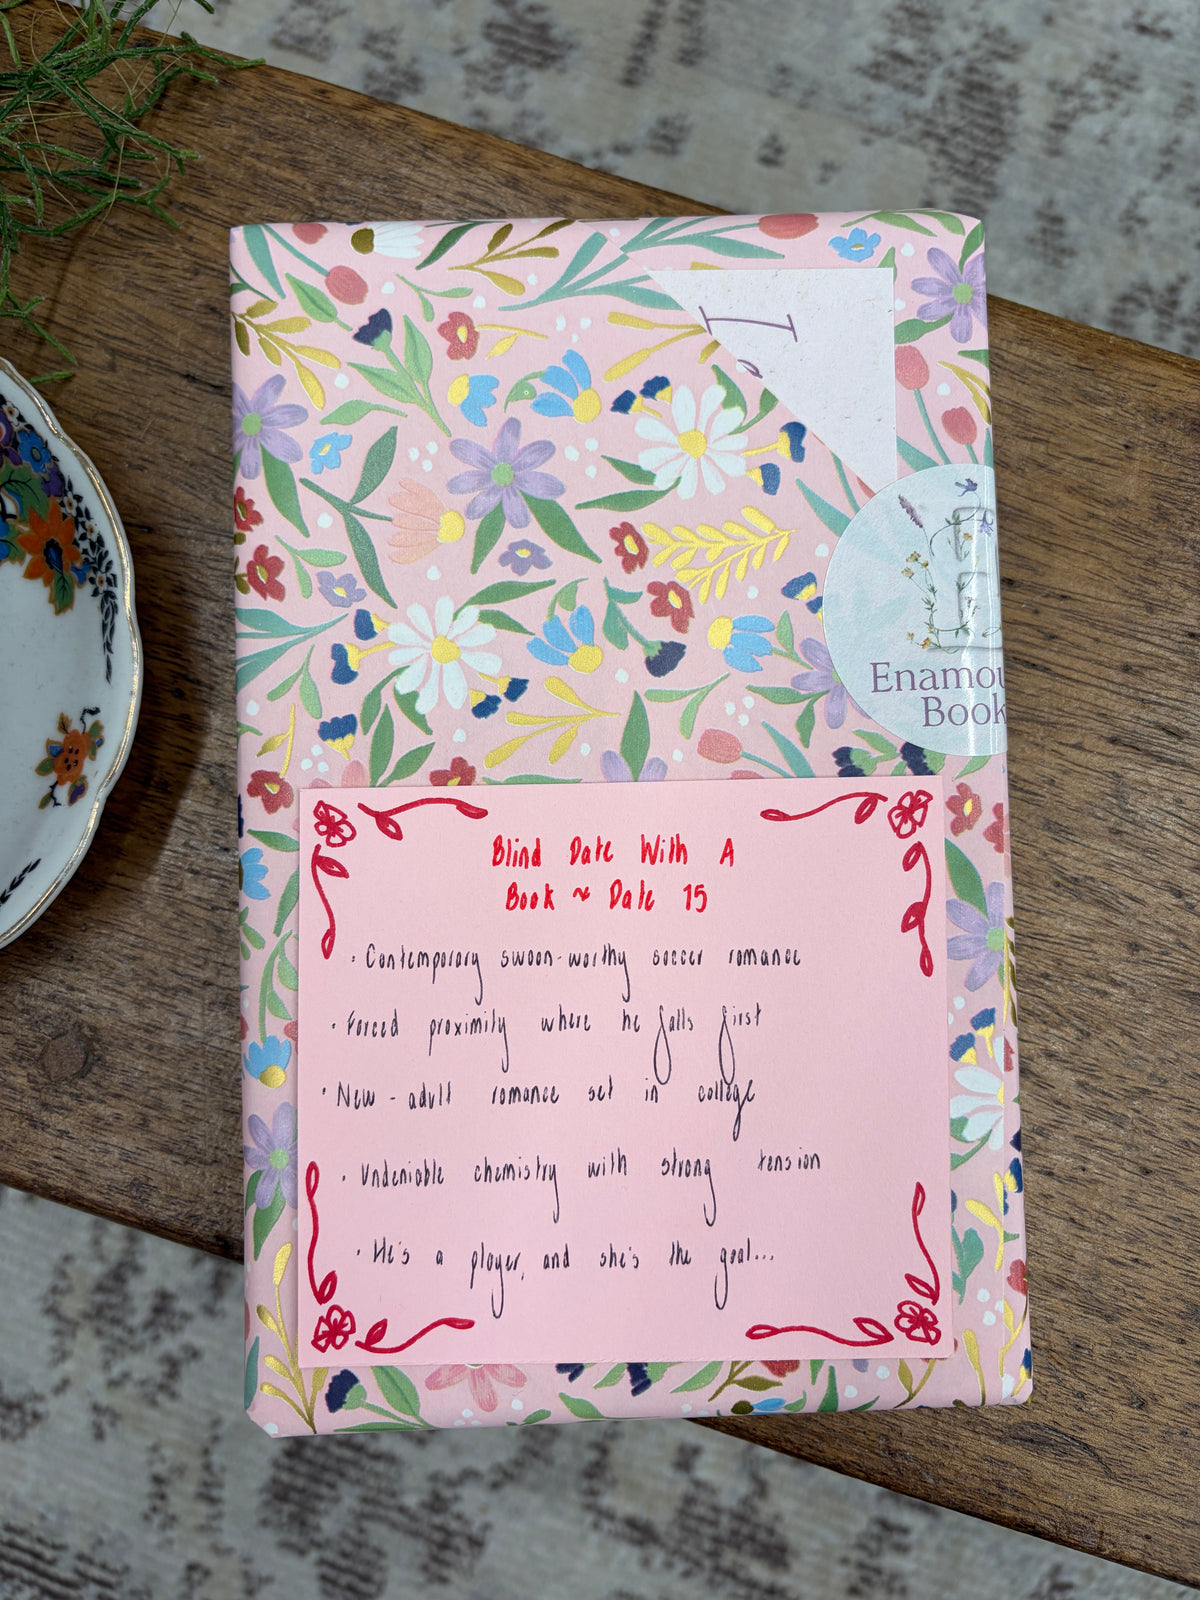 I
Enamou
Book
Blind Date With A
Book ~ Date 15
· Contemporary swoon-worthy soccer romance
· Forced proximity where he falls first
· New-adult romance set in college
· Undeniable chemistry with strong tension
· He's a player, and she's the goal...